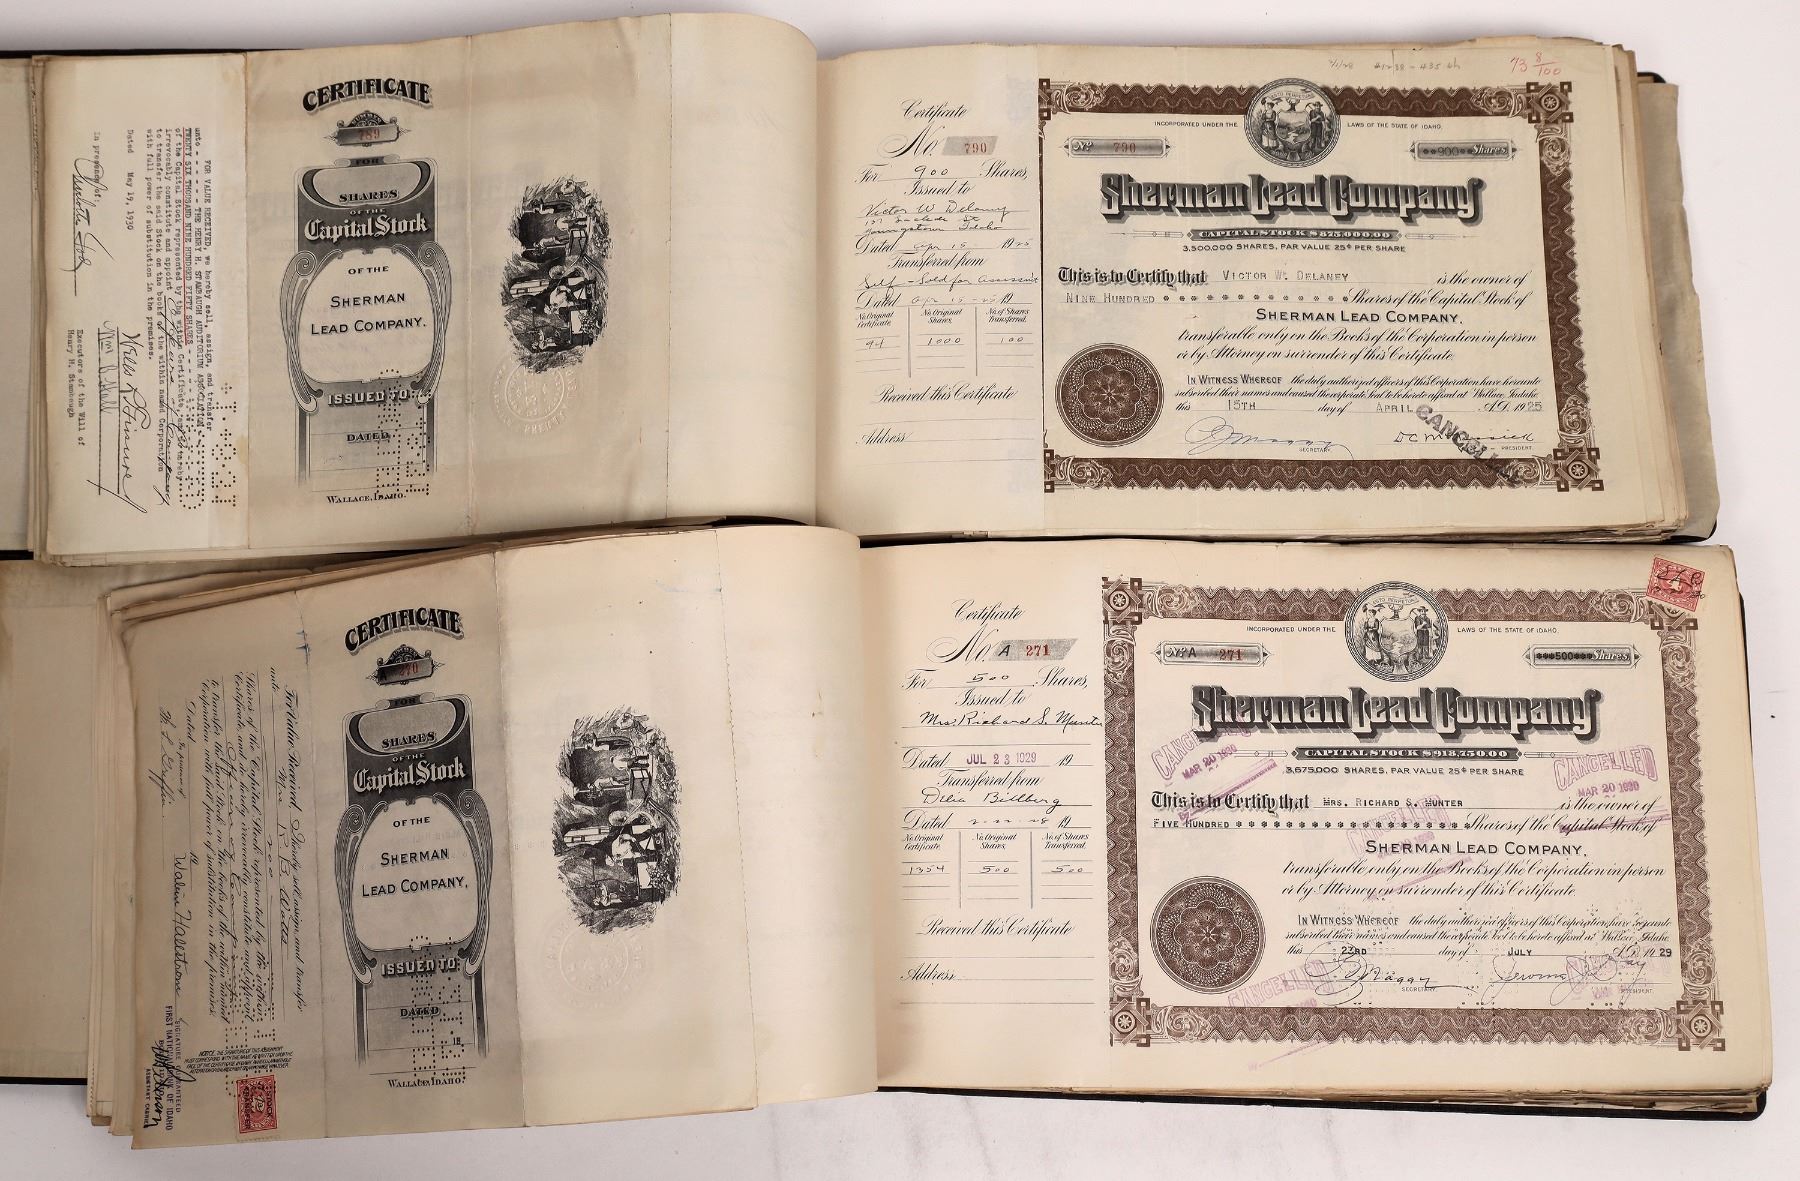 FOR VALUE RECEIVED, we hereby sell, assign, and transfer
unto - - - - - THE HENRY H. STAMBAUGH AUDITORIUM ASSOCIATION
TWENTY SIX THOUSAND NINE HUNDRED FIFTY SHARES
of the Capital Stock represented by the within Certificate, and do hereby
irrevocably constitute and appoint
to transfer the said Stock on the books of the within named Corporation
with full power of substitution in the premises.
Dated May 19, 1930
In presence of:
Executors of the Will of
Henry H. Stambaugh
CERTIFICATE
NUMBER
789
FOR
SHARES
OF THE
Capital Stock
OF THE
SHERMAN
LEAD COMPANY.
ISSUED TO:
DATED
WALLACE, IDAHO.
Certificate
No. 790
For 900 Shares,
Issued to
Victor W Delaney
Dated Apr 15 1925
Transferred from
Self - Sold for
Dated Apr 15-25 19
No. Original Certificate.
No. Original Shares.
No. of Shares Transferred.
94 1000 100
Received this Certificate
Address
73 8/100
INCORPORATED UNDER THE LAWS OF THE STATE OF IDAHO.
No. 790
**900*** Shares
Sherman Lead Company
CAPITAL STOCK $875,000.00
3,500,000 SHARES, PAR VALUE 25¢ PER SHARE
This is to Certify that VICTOR W. DELANEY is the owner of
NINE HUNDRED Shares of the Capital Stock of
SHERMAN LEAD COMPANY.
transferable only on the Books of the Corporation in person
or by Attorney on surrender of this Certificate.
IN WITNESS WHEREOF the duly authorized officers of this Corporation have hereunto
subscribed their names and caused the corporate Seal to be hereto affixed at Wallace, Idaho.
this 15TH day of APRIL A.D. 1925
CANCELLED
SECRETARY.
PRESIDENT.
CERTIFICATE
NUMBER
A 270
FOR
SHARES
OF THE
Capital Stock
OF THE
SHERMAN
LEAD COMPANY.
ISSUED TO:
DATED
19
WALLACE, IDAHO.
For Value Received, I hereby sell, assign and transfer
unto Mrs R.B. Watts
200
Shares of the Capital Stock represented by the within
Certificate and do hereby irrevocably constitute and appoint
to transfer the said Stock on the books of the within named
Corporation with full power of substitution in the premises.
Dated 19
In presence of
NOTICE. THE SIGNATURE OF THIS ASSIGNMENT
MUST CORRESPOND WITH THE NAME AS WRITTEN UPON THE
FACE OF THE CERTIFICATE IN EVERY PARTICULAR WITHOUT
ALTERATION OR ENLARGEMENT OR ANY CHANGE WHATEVER.
SIGNATURE GUARANTEED
FIRST NATIONAL BANK OF IDAHO
BY
ASSISTANT CASHIER
STOCK
TRANSFER
Certificate
No. A 271
For 500 Shares,
Issued to
Mrs. Richard S. Munter
Dated JUL 23 1929 19
Transferred from
Delia Billberg
Dated 19
No. Original Certificate.
No. Original Shares.
No. of Shares Transferred.
1354 500 500
Received this Certificate
Address
INCORPORATED UNDER THE LAWS OF THE STATE OF IDAHO.
No. A 271
***500*** Shares
Sherman Lead Company
CAPITAL STOCK $918,750.00
3,675,000 SHARES, PAR VALUE 25¢ PER SHARE
CANCELLED
MAR 20 1930
CANCELLED
MAR 20 1930
This is to Certify that MRS. RICHARD S. MUNTER is the owner of
FIVE HUNDRED Shares of the Capital Stock of
CANCELLED
SHERMAN LEAD COMPANY.
transferable only on the Books of the Corporation in person
or by Attorney on surrender of this Certificate.
IN WITNESS WHEREOF the duly authorized officers of this Corporation have hereunto
subscribed their names and caused the corporate Seal to be hereto affixed at Wallace, Idaho.
this 23RD day of JULY A.D. 1929
CANCELLED
SECRETARY.
PRESIDENT.